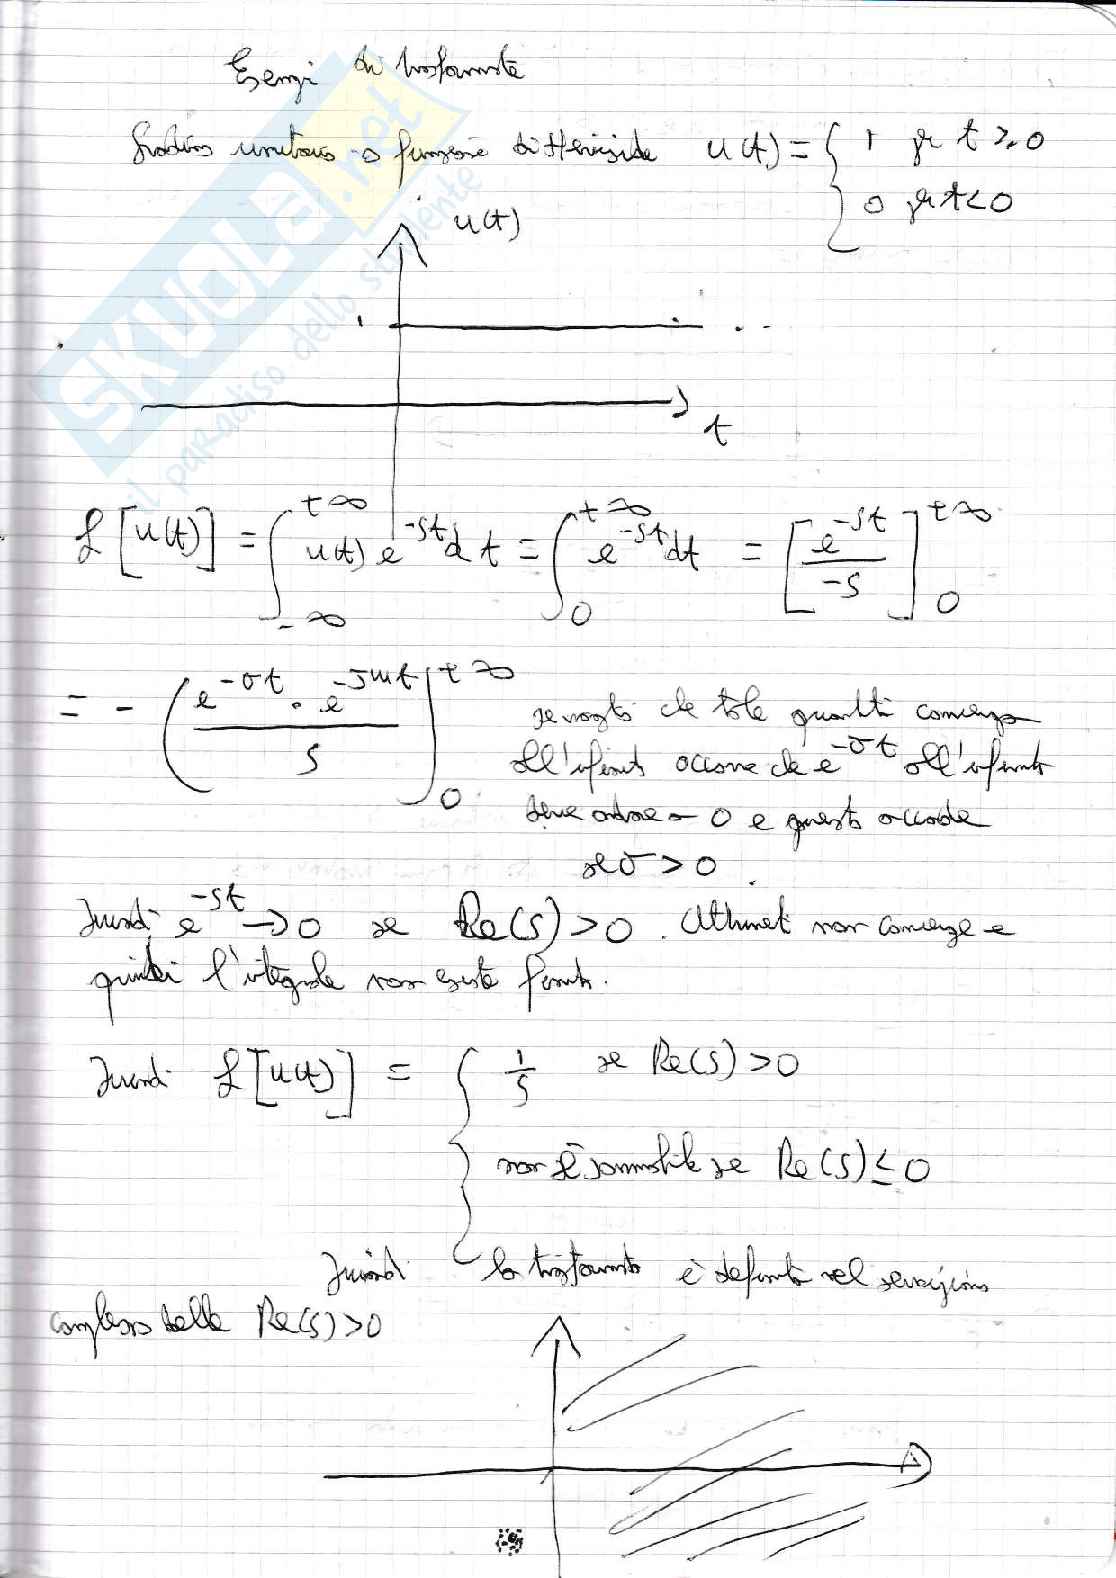 Esempi di trasformate
Gradino unitario o funzione di Heaviside u(t) = { 1 per t ≥ 0
0 per t < 0
u(t)
1
t
SKUOLA.net
il paradiso dello studente
L[u(t)] = ∫_{-∞}^{+∞} u(t) e^{-st} dt = ∫_0^{+∞} e^{-st} dt = [e^{-st}/-s]_0^{+∞}
= - (e^{-σt} · e^{-jωt}/s)|_0^{+∞}
che tale quantità converga
all'infinito occorre che e^{-σt} all'infinito
deve andare a 0 e questo accade
se σ > 0.
Quindi e^{-st} → 0 se Re(s) > 0. Altrimenti non converge e
quindi l'integrale non esiste finito.
Quindi L[u(t)] = { 1/s se Re(s) > 0
non è sommabile se Re(s) ≤ 0
Quindi la trasformata è definita nel semipiano
complesso delle Re(s) > 0